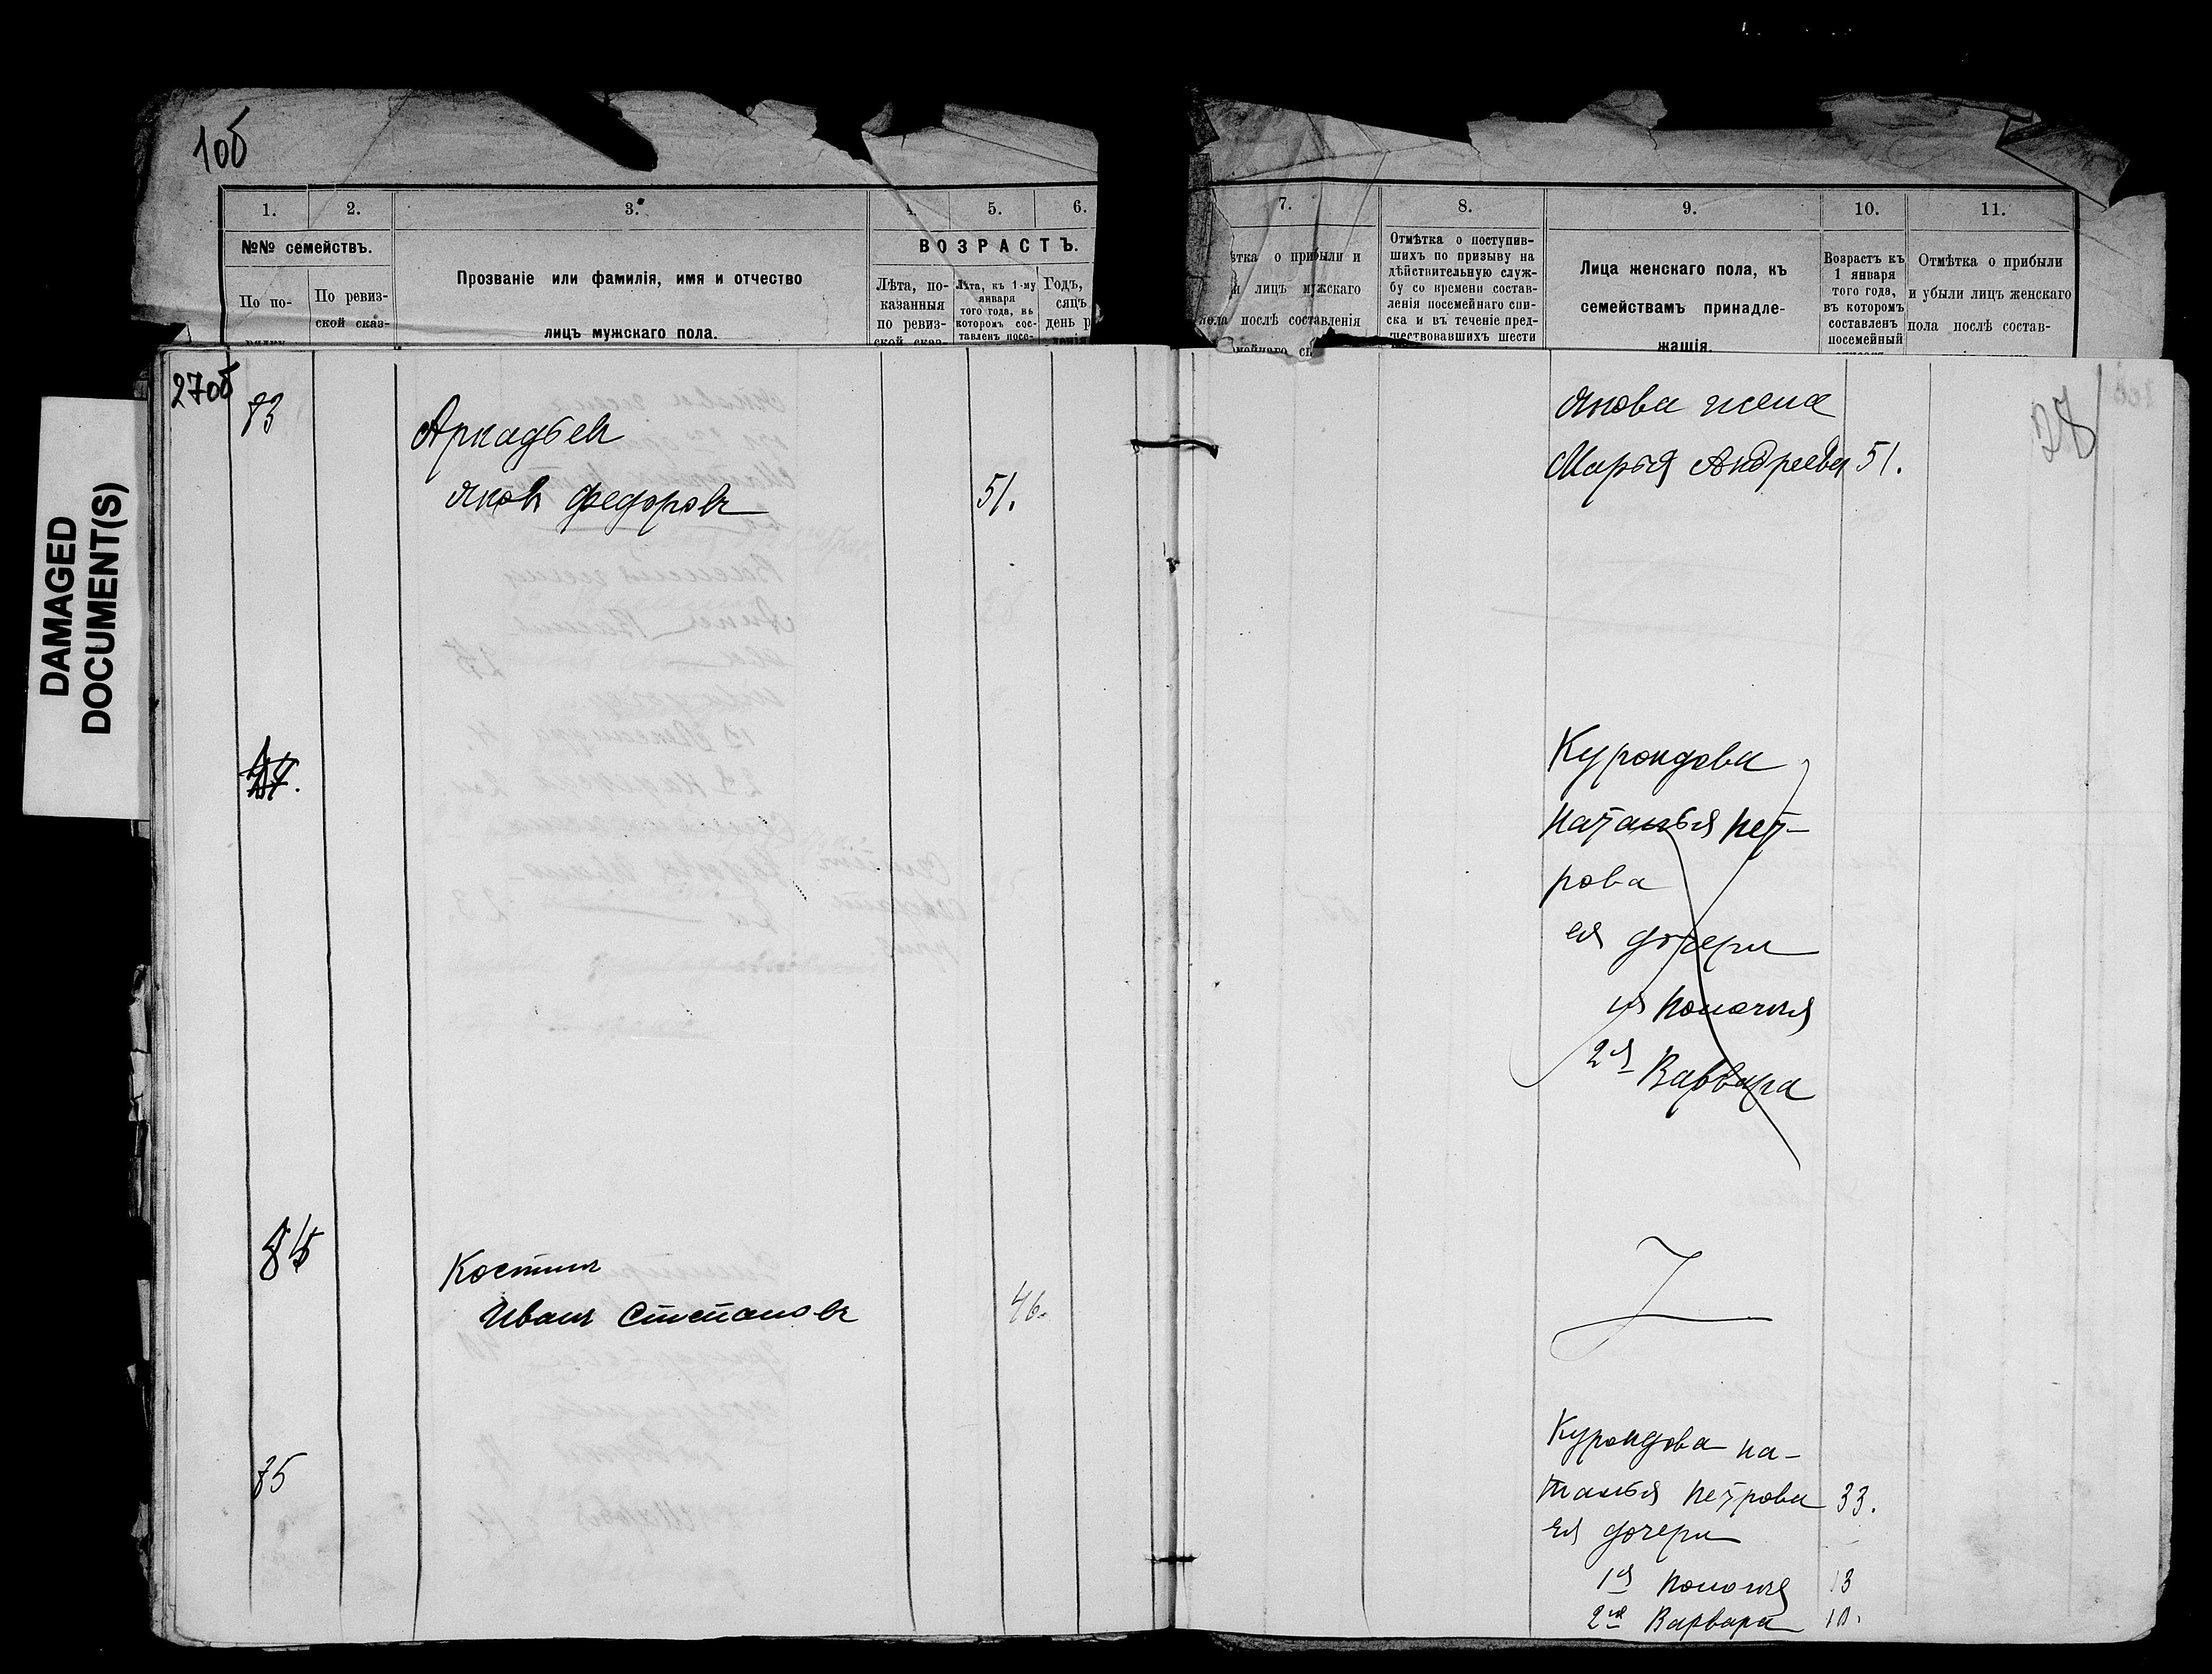 10б
1.
2.
3.
4.
5.
6.
№№ семействъ.
По по-
рядку
По ревиз-
ской сказ-
Прозваніе или фамилія, имя и отчество
лицъ мужскаго пола.
ВОЗРАСТЪ.
Лѣта, по-
казанныя
по ревиз-
ской сказ-
Лѣта, къ 1-му
января
того года, въ
которомъ сос-
тавленъ посе-
Годъ,
сяцъ
день р
7.
8.
9.
10.
11.
ѣтка о прибыли и
и лицъ мужскаго
пола послѣ составленія
Отмѣтка о поступив-
шихъ по призыву на
дѣйствительную служ-
бу со времени состав-
ленія посемейнаго спи-
ска и въ теченіе пред-
шествовавшихъ шести
Лица женскаго пола, къ
семействамъ принадле-
жащія.
Возрастъ къ
1 января
того года,
въ которомъ
составленъ
посемейный
Отмѣтка о прибыли
и убыли лицъ женскаго
пола послѣ состав-
DAMAGED
DOCUMENT(S)
27об
73
Аркадьев
Яковъ Федоровъ 51.
Костинъ
Иванъ Степановъ 46.
75
28
Якова жена
Марья Андреева 51.
Курондова
Наталья Пет-
рова
ея дочери
2я Варвара
Курондова На-
талья Петрова 33.
ея дочери
1я 13
2я Варвара 10.